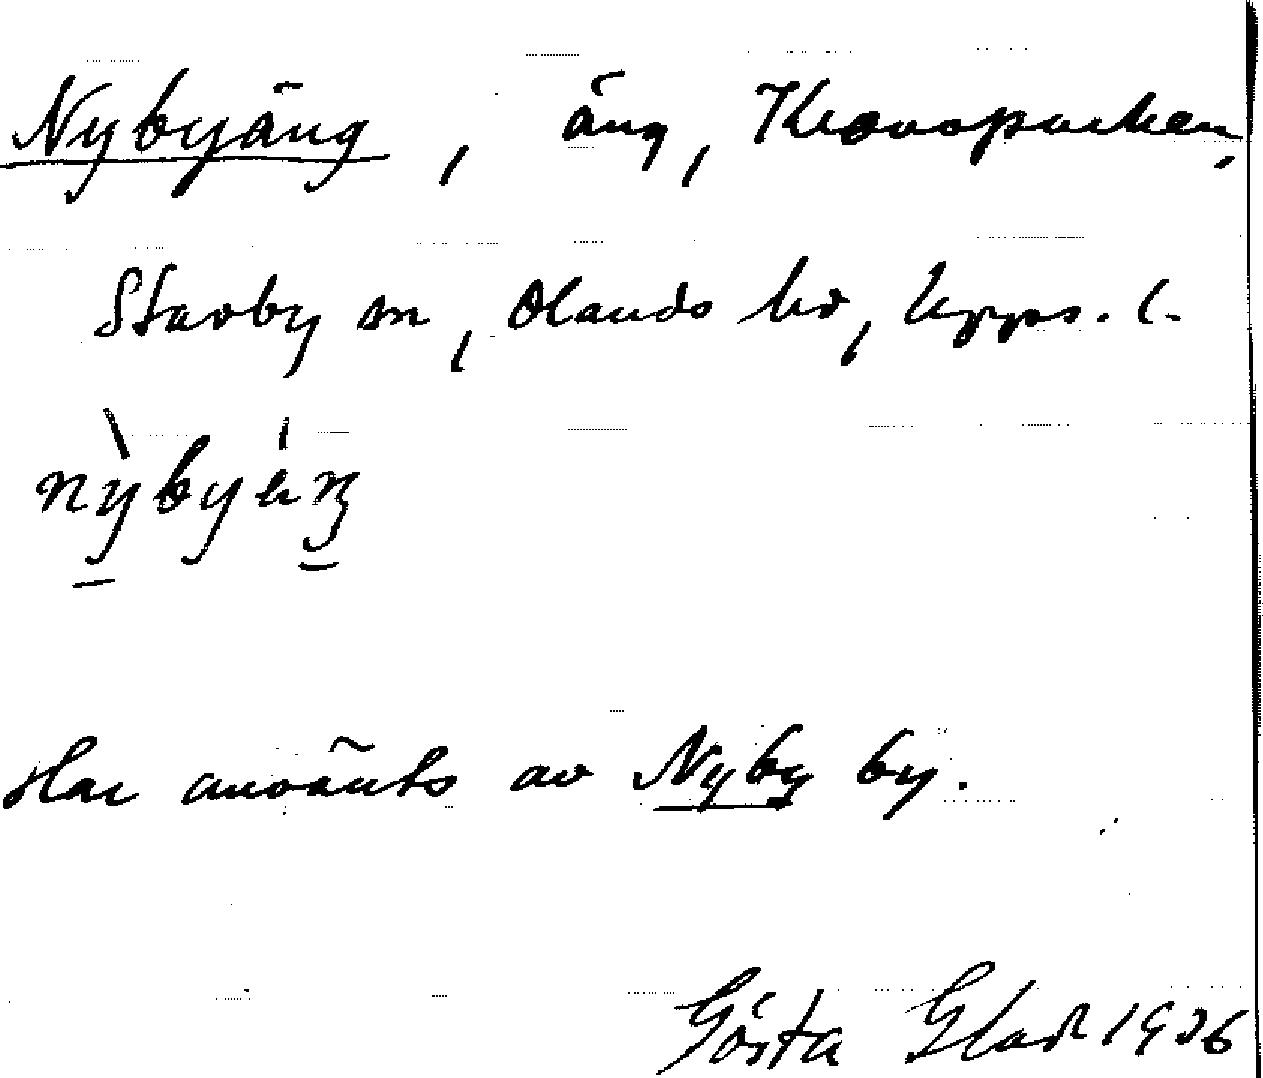 Nybyäng, äng, Kronoparken,
Stavby sn, Olands hd, Upps. l.
nỳbyéŋ
Har använts av Nyby by.
Gösta Glad 1936